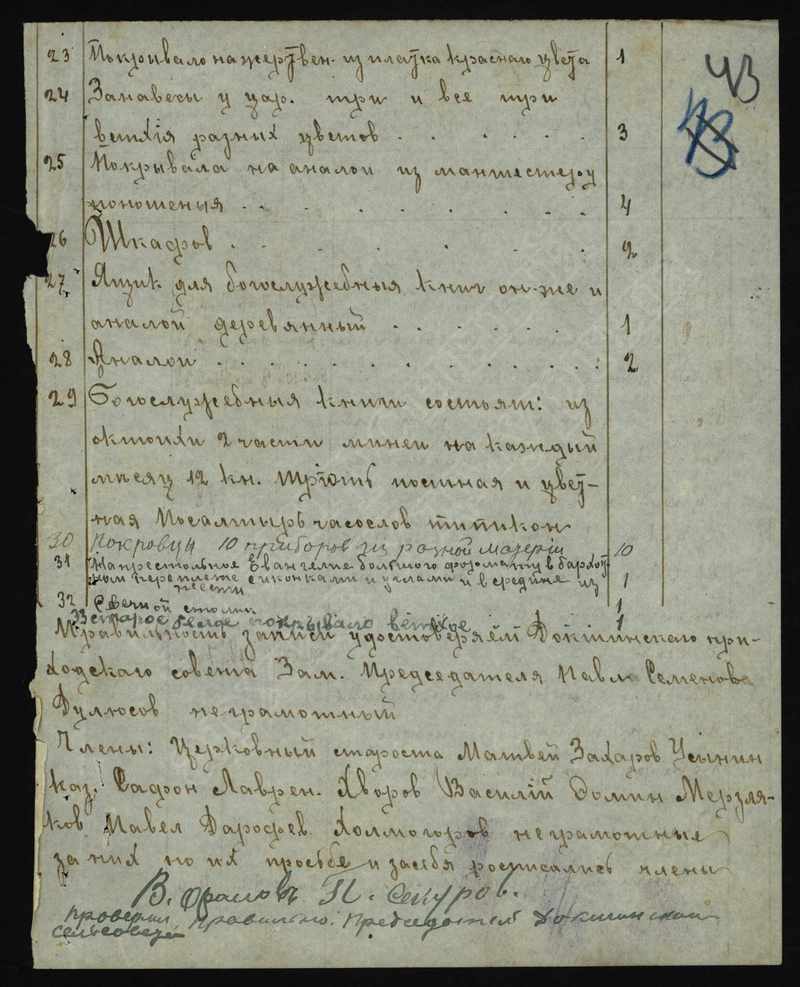 43
43
23 Покрывало на жертвен. из платка краснаго цвета 1
24 Занавесы у цар. три и все три
ветхiя разных цветов . . . . . . 3
25 Покрывала на аналои из манчестеру
поношеныя . . . . . . . . 4
26 Шкафов . . . . . . 2
27 Ящик для богослужебныя книг он-же и
аналой деревянный . . . . . . 1
28 Аналои . . . . . . . . . . . . . 2
29 Богослужебныя книги состоят: из
октоихи 2 части минеи на каждый
месяц 12 кн. Трiоть постная и цвет-
ная Псалтырь часослов типикон
30 Покровцы 10 приборов из разной матерiи 10
31 Напрестольное Евангелие большого формату в бархот
ном переплете с иконками и углами и в средине из
1
32 Свечной столик 1
33 старое покрывало ветхое 1
Правильность записи удостоверяем Докшинскаго при-
ходскаго совета Зам. Председателя Павло Семенова
Дулюсов неграмотный
Члены: Церковный староста Матвей Захаров Усынин
каз. Сафрон Лаврен. Хворов Василiй Домин Мерзля-
ков Павел Дарофеев Холмогоров неграмотныя
за них по их прозьбе и за себя росписались члены
В. П. Секуров.
Проверил правильно. Председатель Докшинскаго
сельсовета